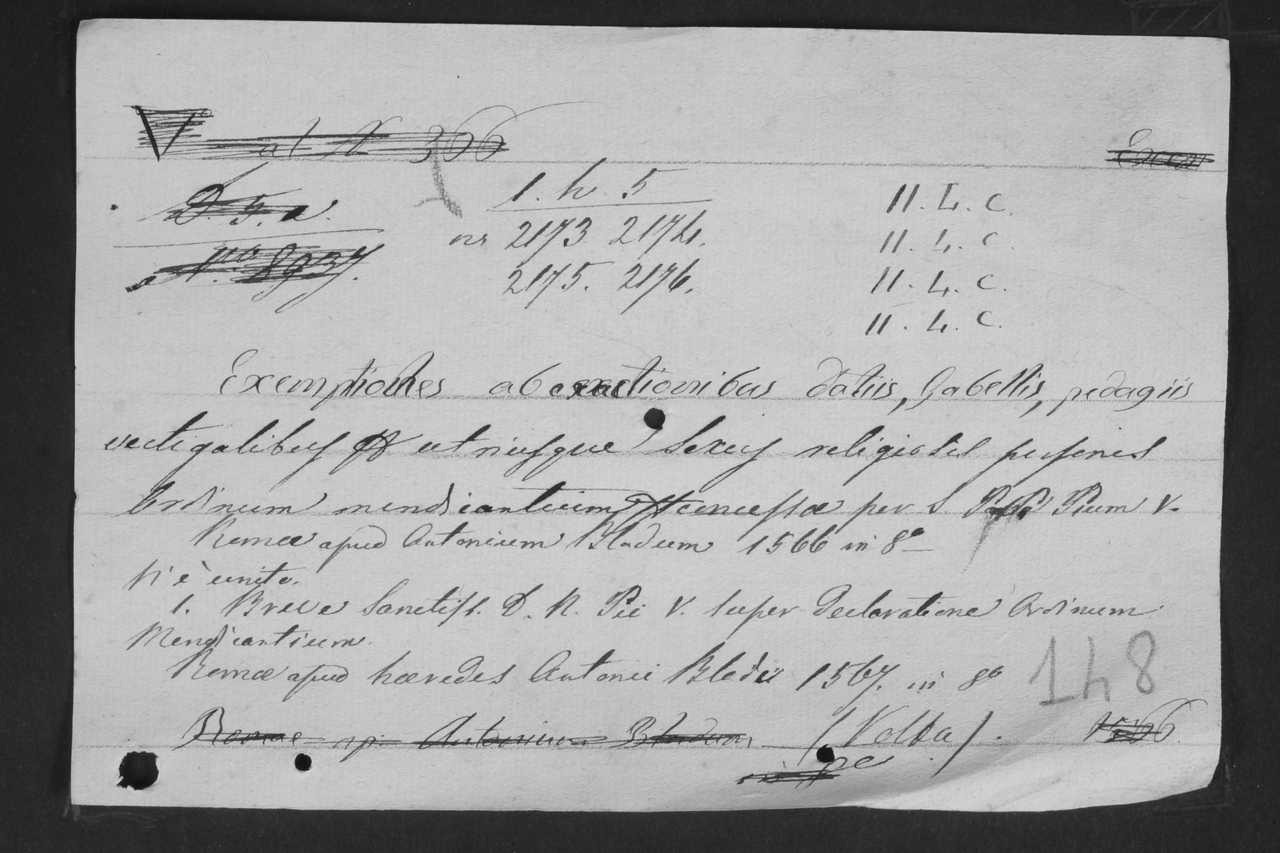 al N 366
D 5. a.
1. h 5
II. L. C.
nr 2173 2174.
II. L. C.
No. 8937.
2175. 2176.
II. L. C.
II. L. C.
Exemptiones ab exactionibus datiis, Gabellis, pedagiis
vectigalibus utriusque sexus religiosis personis
Ordinum mendicantium concessae per S. Pium V.
Romae apud Antonium Bladum 1566 in 8°
Vi è unito.
1. Breve Sanctiss. D. N. Pii V. super declaratione Ordinum
Mendicantium.
Romae apud haeredes Antonii Bladii 1567. in 8°
148
Romae ap. Antonium Bladum, (Volta). 1566